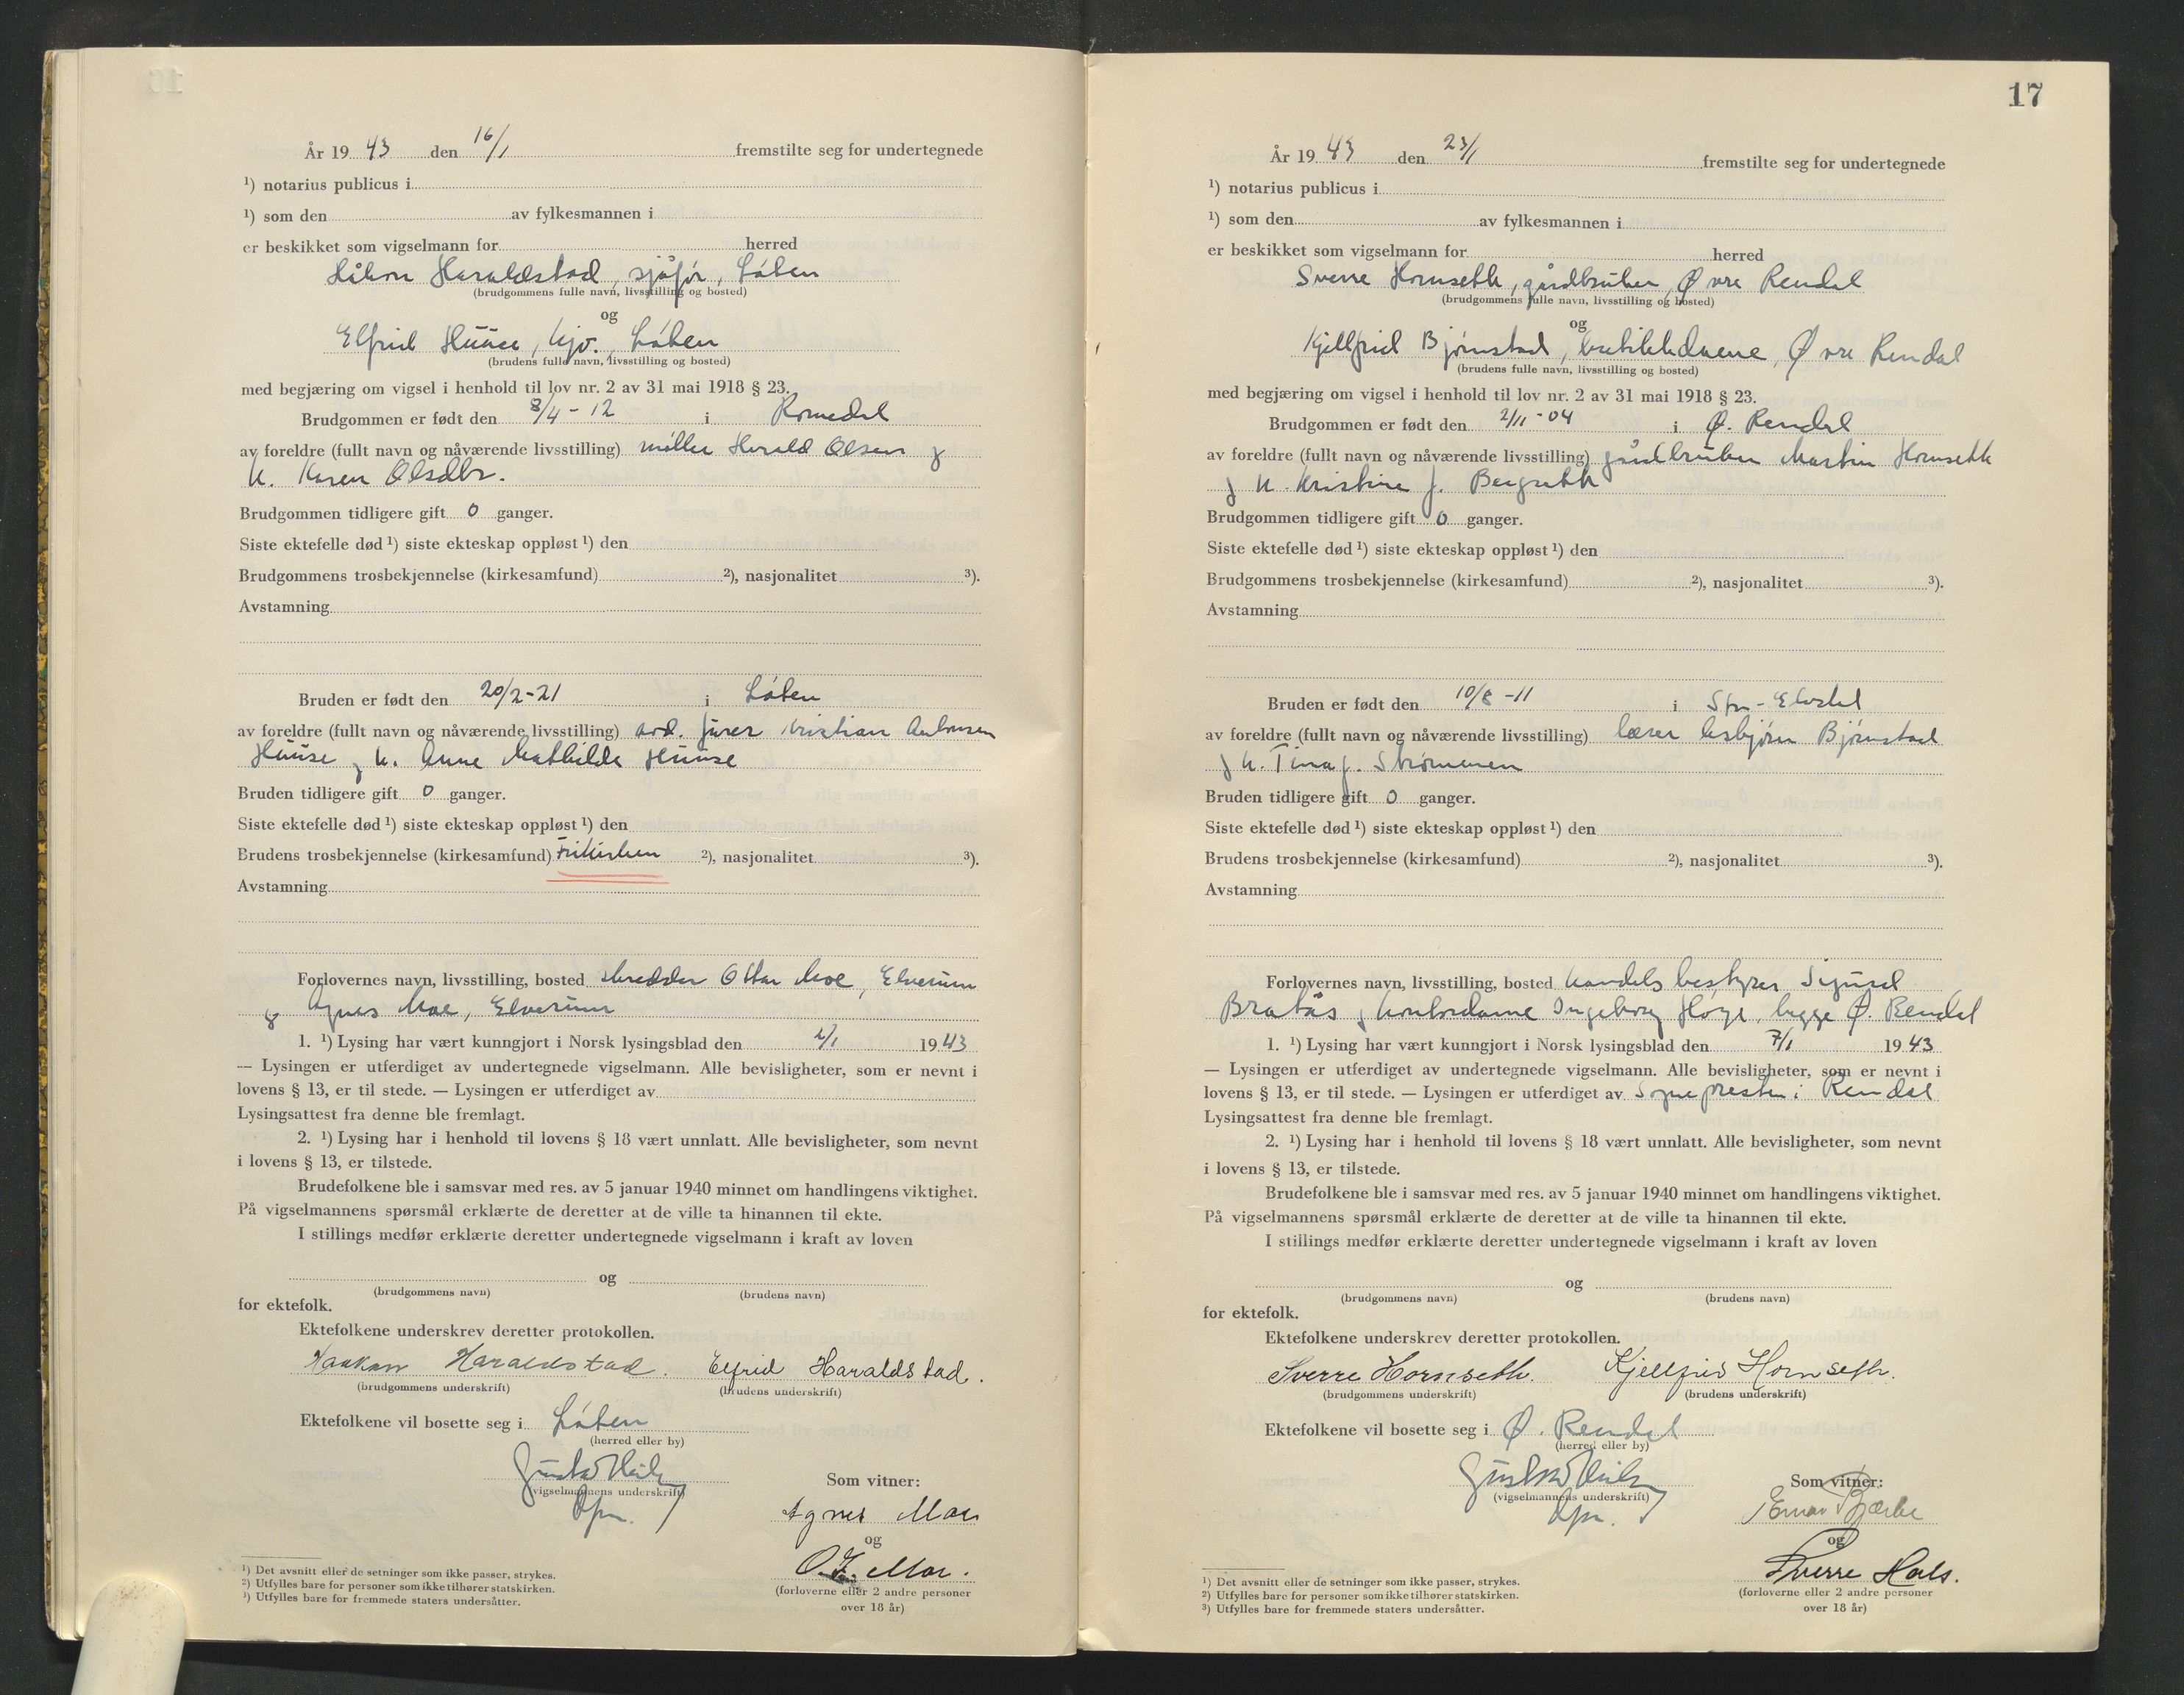 År 19 43 den 16/1 fremstilte seg for undertegnede
¹) notarius publicus i
¹) som den av fylkesmannen i
er beskikket som vigselmann for herred
Håkon Haraldstad, sjåfør, Løten
(brudgommens fulle navn, livsstilling og bosted)
og
Elfrid Huuse, hjv., Løten
(brudens fulle navn, livsstilling og bosted)
med begjæring om vigsel i henhold til lov nr. 2 av 31 mai 1918 § 23.
Brudgommen er født den 8/4 - 12 i Romedal
av foreldre (fullt navn og nåværende livsstilling) møller Harald Olsen og
h. Karen Olsdtr.
Brudgommen tidligere gift 0 ganger.
Siste ektefelle død ¹) siste ekteskap oppløst ¹) den
Brudgommens trosbekjennelse (kirkesamfund) ²), nasjonalitet ³).
Avstamning
Bruden er født den 20/2-21 i Løten
av foreldre (fullt navn og nåværende livsstilling) Kristian
Huuse og h. Anne Mathilde Huuse
Bruden tidligere gift 0 ganger.
Siste ektefelle død ¹) siste ekteskap oppløst ¹) den
Brudens trosbekjennelse (kirkesamfund) Frikirken ²), nasjonalitet ³).
Avstamning
Forlovernes navn, livsstilling, bosted skredder Ottar Moe, Elverum
og Agnes Moe, Elverum
1. ¹) Lysing har vært kunngjort i Norsk lysingsblad den 2/1 19 43
— Lysingen er utferdiget av undertegnede vigselmann. Alle bevisligheter, som er nevnt i
lovens § 13, er til stede. — Lysingen er utferdiget av
Lysingsattest fra denne ble fremlagt.
2. ¹) Lysing har i henhold til lovens § 18 vært unnlatt. Alle bevisligheter, som nevnt
i lovens § 13, er tilstede.
Brudefolkene ble i samsvar med res. av 5 januar 1940 minnet om handlingens viktighet.
På vigselmannens spørsmål erklærte de deretter at de ville ta hinannen til ekte.
I stillings medfør erklærte deretter undertegnede vigselmann i kraft av loven
og
(brudgommens navn) (brudens navn)
for ektefolk.
Ektefolkene underskrev deretter protokollen.
Haakon Haraldstad. Elfrid Haraldstad.
(brudgommens underskrift) (brudens underskrift)
Ektefolkene vil bosette seg i Løten
(herred eller by)
(vigselmannens underskrift)
Som vitner:
Agnes Moe
og
Moe.
(forloverne eller 2 andre personer
over 18 år)
¹) Det avsnitt eller de setninger som ikke passer, strykes.
²) Utfylles bare for personer som ikke tilhører statskirken.
³) Utfylles bare for fremmede staters undersåtter.
17
År 19 43 den 23/1 fremstilte seg for undertegnede
¹) notarius publicus i
¹) som den av fylkesmannen i
er beskikket som vigselmann for herred
Sverre Hornseth, gårdbruker, Øvre Rendal
(brudgommens fulle navn, livsstilling og bosted)
og
Kjellfrid Bjørnstad, butikkdame, Øvre Rendal
(brudens fulle navn, livsstilling og bosted)
med begjæring om vigsel i henhold til lov nr. 2 av 31 mai 1918 § 23.
Brudgommen er født den 2/11-04 i Ø. Rendal
av foreldre (fullt navn og nåværende livsstilling) gårdbruker Martin Hornseth
og h. Kristine f. Bergseth
Brudgommen tidligere gift 0 ganger.
Siste ektefelle død ¹) siste ekteskap oppløst ¹) den
Brudgommens trosbekjennelse (kirkesamfund) ²), nasjonalitet ³).
Avstamning
Bruden er født den 10/8 -11 i Stor-Elvdal
av foreldre (fullt navn og nåværende livsstilling) lærer Asbjørn Bjørnstad
og h. Tina f. Strømmen
Bruden tidligere gift 0 ganger.
Siste ektefelle død ¹) siste ekteskap oppløst ¹) den
Brudens trosbekjennelse (kirkesamfund) ²), nasjonalitet ³).
Avstamning
Forlovernes navn, livsstilling, bosted Handelsbestyrer Sigurd
Bratås og kontordame Ingeborg Høye, begge Ø. Rendal
1. ¹) Lysing har vært kunngjort i Norsk lysingsblad den 7/1 19 43
— Lysingen er utferdiget av undertegnede vigselmann. Alle bevisligheter, som er nevnt i
lovens § 13, er til stede. — Lysingen er utferdiget av Sognepresten i Rendal
Lysingsattest fra denne ble fremlagt.
2. ¹) Lysing har i henhold til lovens § 18 vært unnlatt. Alle bevisligheter, som nevnt
i lovens § 13, er tilstede.
Brudefolkene ble i samsvar med res. av 5 januar 1940 minnet om handlingens viktighet.
På vigselmannens spørsmål erklærte de deretter at de ville ta hinannen til ekte.
I stillings medfør erklærte deretter undertegnede vigselmann i kraft av loven
og
(brudgommens navn) (brudens navn)
for ektefolk.
Ektefolkene underskrev deretter protokollen.
Sverre Hornseth. Kjellfrid Hornseth.
(brudgommens underskrift) (brudens underskrift)
Ektefolkene vil bosette seg i Ø. Rendal
(herred eller by)
(vigselmannens underskrift)
Som vitner:
Einar
og
Sverre Hals.
(forloverne eller 2 andre personer
over 18 år)
¹) Det avsnitt eller de setninger som ikke passer, strykes.
²) Utfylles bare for personer som ikke tilhører statskirken.
³) Utfylles bare for fremmede staters undersåtter.